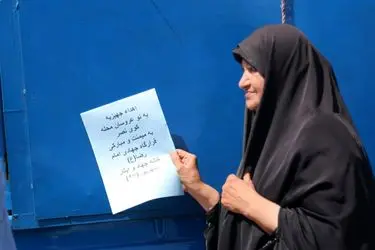 اهداء جهیزیه
به نو عروسان محله
کوی نصر
به میمنت و مبارکی
قرارگاه جهادی امام
رضا(ع)